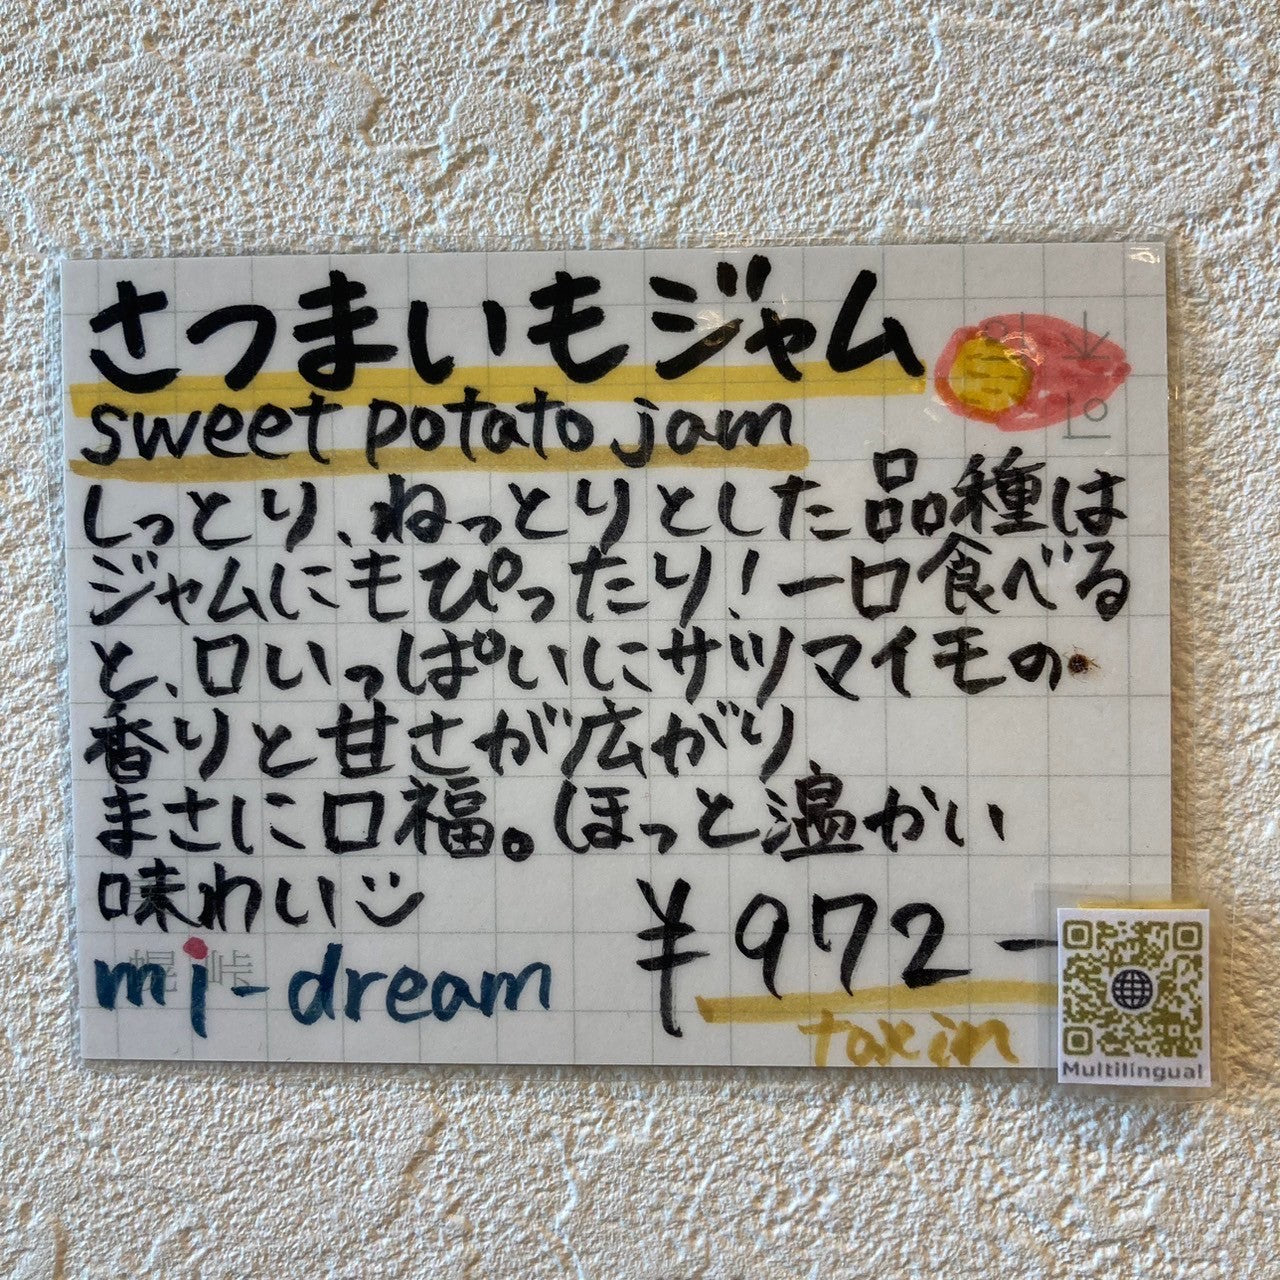 さつまいもジャム
sweet potato jam
しっとり、ねっとりとした品種は
ジャムにもぴったり！一口食べる
と、口いっぱいにサツマイモの
香りと甘さが広がり
まさに口福。ほっと温かい
味わい
mi-dream
¥972-
tax in
Multilingual